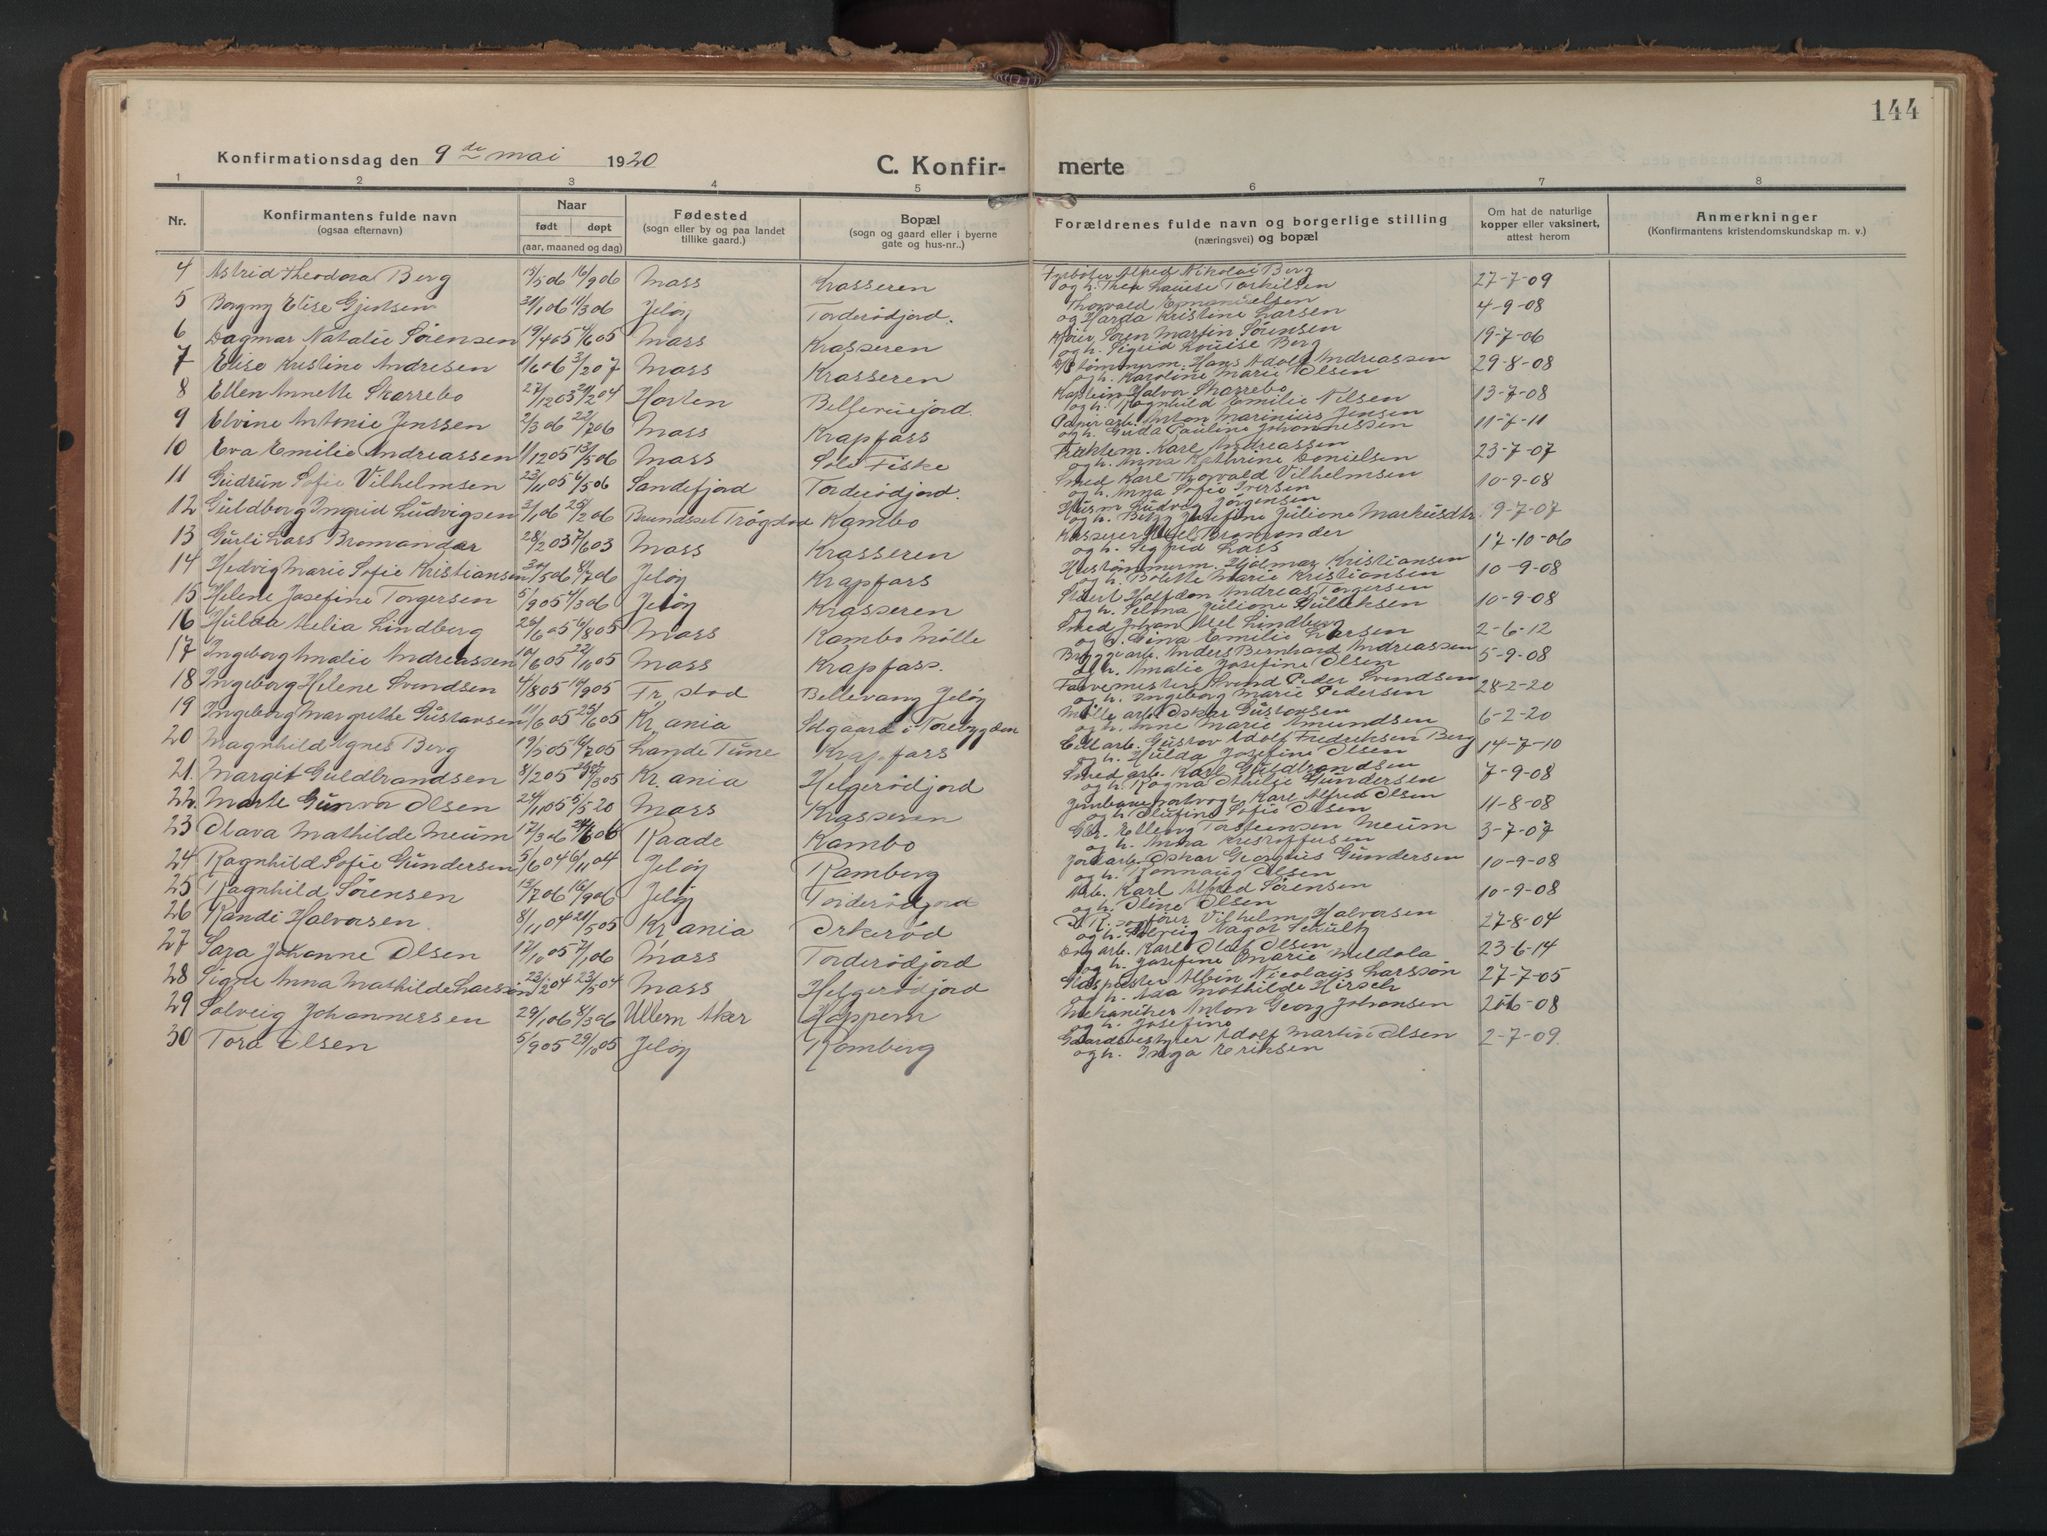 144
Konfirmationsdag den 9 de mai 1920
C. Konfir- merte
1 2 3 4 5 6 7 8
Nr. Konfirmantens fulde navn (ogsaa efternavn) Naar født døpt (aar, maaned og dag) Fødested (sogn eller by og paa landet tillike gaard.) Bopæl (sogn og gaard eller i byerne gate og hus-nr..) Forældrenes fulde navn og borgerlige stilling (næringsvei) og bopæl Om hat de naturlige kopper eller vaksinert, attest herom Anmerkninger (Konfirmantens kristendomskundskap m. v.)
4 Astrid Theodora Berg 13/5 06 16/9 06 Moss Krasseren Fyrbøter Alfred Nikolai Berg 27-7-09
og h. Thea Louise Torkilsen
5 Borgny Elise Gjertsen 31/1 06 11/3 06 Jeløy Torderødjord. Thorvald Emanuelsen 4-9-08
og Harda Kristine Larsen
6 Dagmar Natalie Sørensen 19/4 05 4/6 05 Moss Krasseren Søren Martin Sørensen 19-7-06
og h. Sigrid Louise Berg
7 Elise Kristine Andresen 1/6 06 3/2 07 Moss Krasseren Hans Adolf Andreassen 29-8-08
og h. Karoline Marie Olsen
8 Ellen Annette Skarrebo 27/12 03 21/2 04 Horten Bellevuejord. Kaptein Halvor Skarrebo 13-7-08
og h. Ragnhild Emilie Nilsen
9 Elvine Antonie Jenssen 2/3 06 22/7 06 Moss Krapfars Papirarb. Anton Marinius Jensen 11-7-11
og h. Gusta Pauline Johannessen
10 Eva Emilie Andreassen 1/12 05 13/5 06 Moss Solo Fiske Karl Andreassen 23-7-07
og h. Anna Kathrine Danielsen
11 Gudrun Sofie Vilhelmsen 23/11 05 6/5 06 Sandefjord Torderødjord. Smed Karl Thorvald Vilhelmsen 10-9-08
og h. Anna Sofie Iversen
12 Guldborg Ingrid Ludvigsen 3/1 06 25/2 06 Brundsset Trøgstad Kambo Husm Ludvig Jørgensen 9-7-07
og h. Josefine Juliane Markusdtr.
13 Gurli Lass Bromander 28/2 03 7/6 03 Moss Krasseren Kasserer Axel Bromander 17-10-06
og h. Sigfrid Lass
14 Hedvig Marie Sofie Kristiansen 31/5 06 8/7 06 Jeløy Krapfars Hustømmerm. Hjalmar Kristiansen 10-9-08
og h. Bolette Marie Kristiansen
15 Helene Josefine Torgersen 5/9 05 4/3 06 Jeløy Krasseren Halfdan Andreas Torgersen 10-9-08
og h. Selma Juliane Gulliksen
16 Hulda Aelia Lindberg 26/6 05 6/8 05 Moss Kambo Mølle Smed Johan Axel Lindberg 2-6-12
og h. Gina Emilie Larsen
17 Ingeborg Amalie Andreassen 10/6 05 22/10 05 Moss Krapfars. Bryggearb. Anders Bernhard Andreassen 5-9-08
og h. Amalie Josefine Olsen
18 Ingeborg Helene Svendsen 4/8 05 14/9 05 Fr, stad Bellevang Jeløy Farvemester Svend Peder Svendsen 28-2-20
og h. Ingeborg Marie Pedersen
19 Ingeborg Margrethe Gustavsen 11/6 05 25/6 05 Kr, ania Solgaard i Torebygden Mølle arb. Oskar Gustavsen 6-2-20
og h. Anne Marie Amundsen
20 Magnhild Agnes Berg 19/5 05 16/7 05 Lande Tune Krap. fars Cell arb. Gustav Adolf Fredriksen Berg 14-7-10
og h. Hulda Josefine Olsen
21. Margit Guldbrandsen 8/2 05 /3 05 Kr. ania Helgerødjord Smed arb. Karl Guldbrandsen 7-9-08
og h. Ragna Gundersen
22. Marte Gunvor Olsen 24/11 05 5/5 20 Moss Krasseren Karl Alfred Olsen 11-8-08
og h Olufine Sofie Olsen
23 Olava Mathilde Meum 17/3 06 24/6 06 Raade Kambo Torsteensen Meum 3-7-07
og h. Anna Kristoffersen
24 Ragnhild Sofie Gundersen 5/6 04 6/11 04 Jeløy Ramberg Jordarb. Oskar Georgius Gundersen 10-9-08
og h. Rønnaug Olsen
25 Ragnhild Sørensen 13/7 06 16/9 06 Jeløy Torderødjord Arb. Karl Alfred Sørensen 10-9-08
og h. Oline Olsen
26 Randi Halvorsen 8/11 04 21/5 05 Kr, ania Orkerød Vilhelm Halvorsen 27-8-04
og h. Solveig Nagot Schultz
27 Sara Johanne Olsen 17/10 05 7/1 06 Moss Torderødjord Karl Olaf Olsen 23-6-14
og h. Josefine Marie Meldola
28 Signe Anna Mathilde Larsson 23/2 04 23/5 04 Moss Helgerødjord Albin Nicolaus Larsson 27-7-05
og h. Ada Mathilde Hirsch
29 Solveig Johannessen 29/1 06 8/3 06 Ullern Aker Koppern Mekaniker Anton Georg Johansen 20-6-08
og h. Josefine
30 Tora Olsen 5/9 05 29/10 05 Jeløy Ramberg Gaardsbestyrer Adolf Martin Olsen 2-7-09.
og h. Inga Eriksen